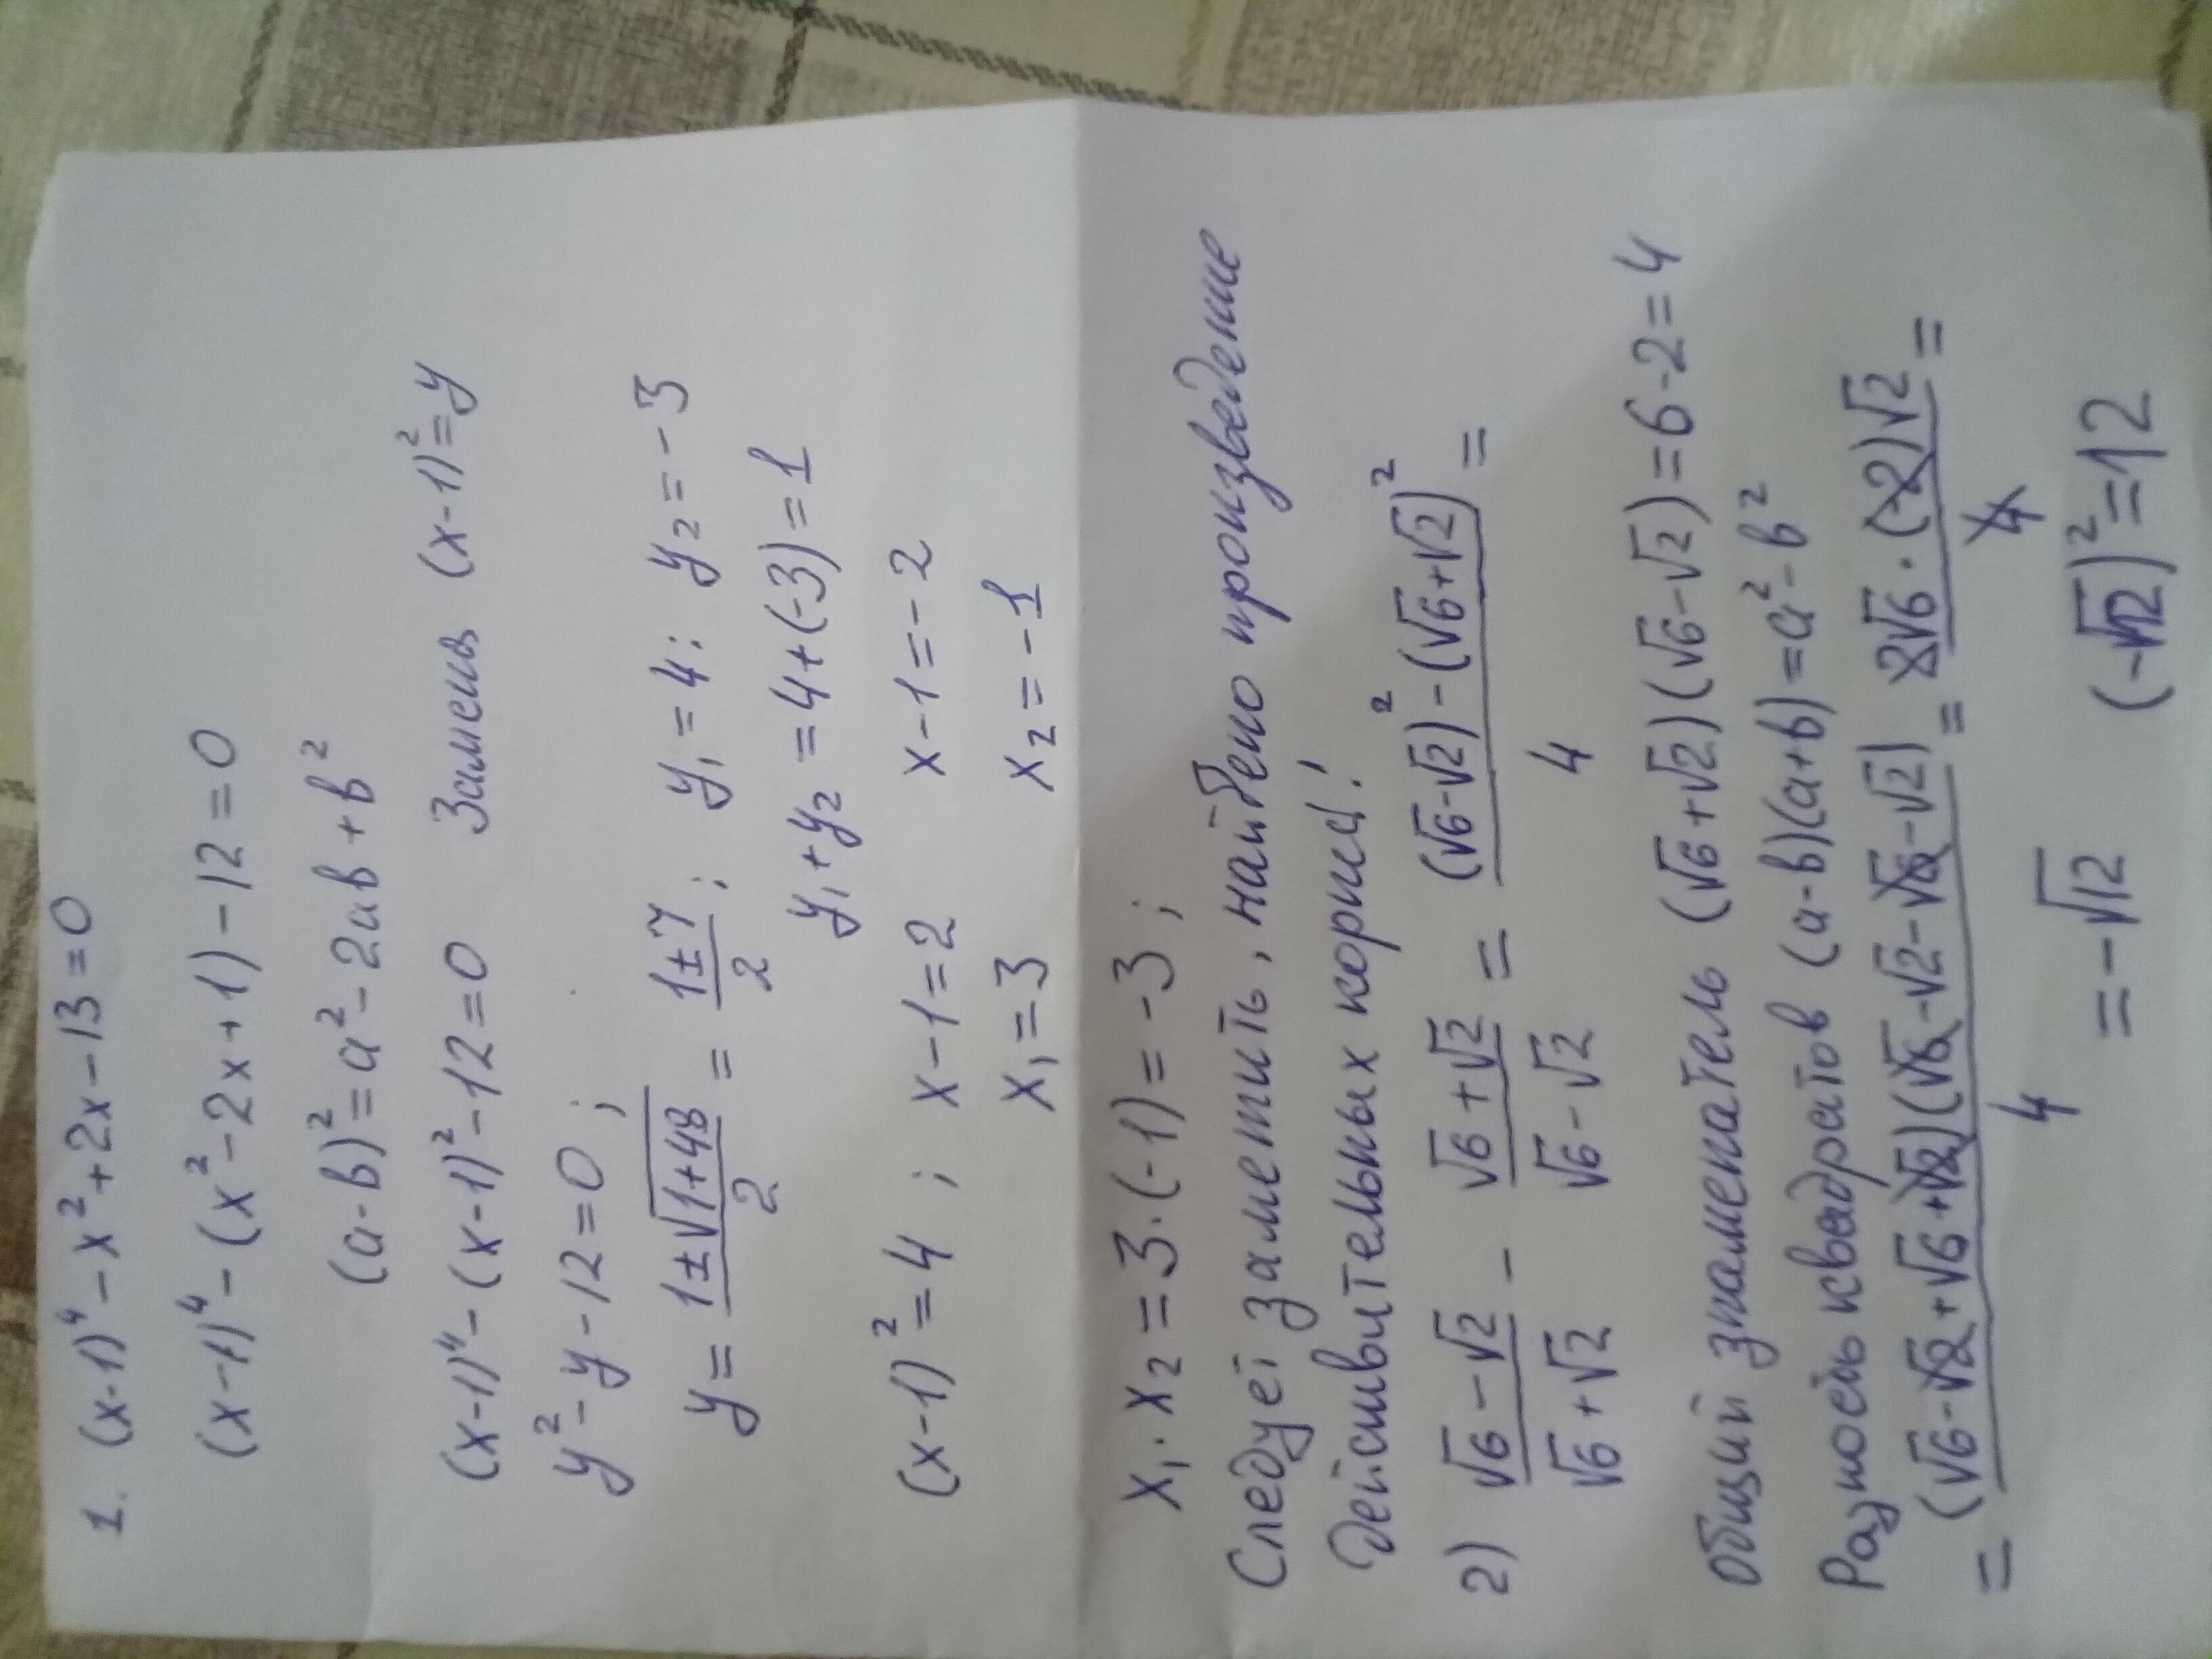 1. (x-1)⁴ - x² + 2x - 13 = 0
(x-1)⁴ - (x² - 2x + 1) - 12 = 0
(a-b)² = a² - 2ab + b²
(x-1)⁴ - (x-1)² - 12 = 0 Замена (x-1)² = y
y² - y - 12 = 0;
y = (1±√(1+48))/2 = (1±7)/2; y₁ = 4; y₂ = -3
y₁ + y₂ = 4 + (-3) = 1
(x-1)² = 4; x-1 = 2 x-1 = -2
x₁ = 3 x₂ = -1
x₁ · x₂ = 3 · (-1) = -3;
Следует заметить, найдено произведение
действительных корней!
2) (√6 - √2)/(√6 + √2) - (√6 + √2)/(√6 - √2) = ((√6-√2)² - (√6+√2)²)/4 =
Общий знаменатель (√6 + √2)(√6 - √2) = 6 - 2 = 4
Разность квадратов (a-b)(a+b) = a² - b²
= (√6 - √2 + √6 + √2)(√6 - √2 - √6 - √2)/4 = 2√6 · (-2)√2/4 =
= -√12 (-√12)² = 12